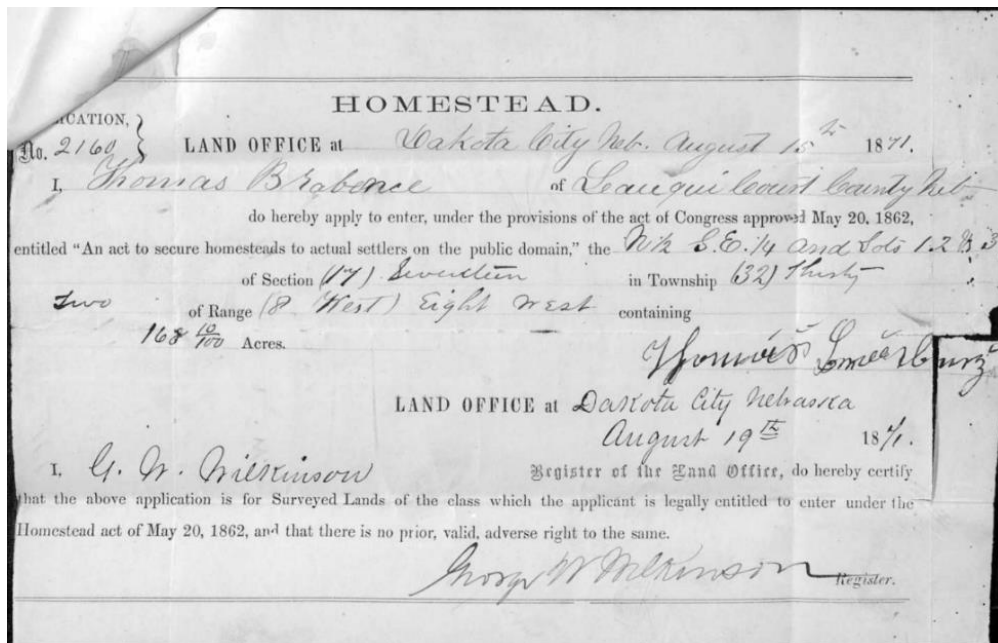 HOMESTEAD.
ICATION,
No. 2160 } LAND OFFICE at Dakota City Neb. August 15th 1871.
I, Thomas Brabence of L'auqui Court County Neb
do hereby apply to enter, under the provisions of the act of Congress approved May 20, 1862,
entitled "An act to secure homesteads to actual settlers on the public domain," the N½ S.E. ¼ and Lots 1. 2 & 3
of Section (17) Seventeen in Township (32) Thirty
Two of Range (8 West) Eight West containing
168 10/100 Acres.
Thomas
LAND OFFICE at Dakota City Nebraska
August 19th 1871.
I, G. W. Wilkinson Register of the Land Office, do hereby certify
that the above application is for Surveyed Lands of the class which the applicant is legally entitled to enter under the
Homestead act of May 20, 1862, and that there is no prior, valid, adverse right to the same.
George W Wilkinson Register.